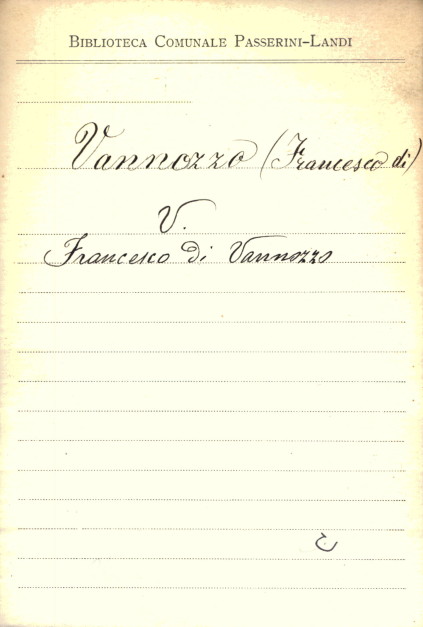 Biblioteca Comunale Passerini-Landi
Vannozzo (Francesco di)
V.
Francesco di Vannozzo